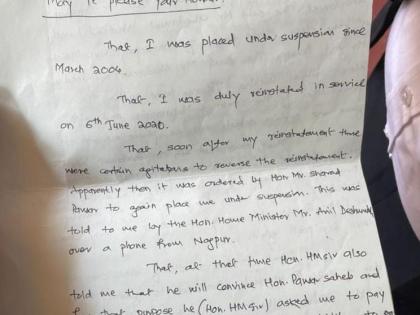 may it please your
That, I was placed under suspension since
March 2004.
That, I was duly reinstated in service
on 6th June 2020.
That, soon after my reinstatement there
were certain agitations to reverse the reinstatement.
Apparently then it was ordered by Hon. Mr. Sharad
Pawar to again place me under suspension. This was
told to me by the Hon. Home Minister Mr. Anil Deshmukh
over a phone from Nagpur.
That, at that time Hon. HM Sir also
told me that he will convince Hon. Pawar saheb and
that purpose he (Hon. HM Sir) asked me to pay